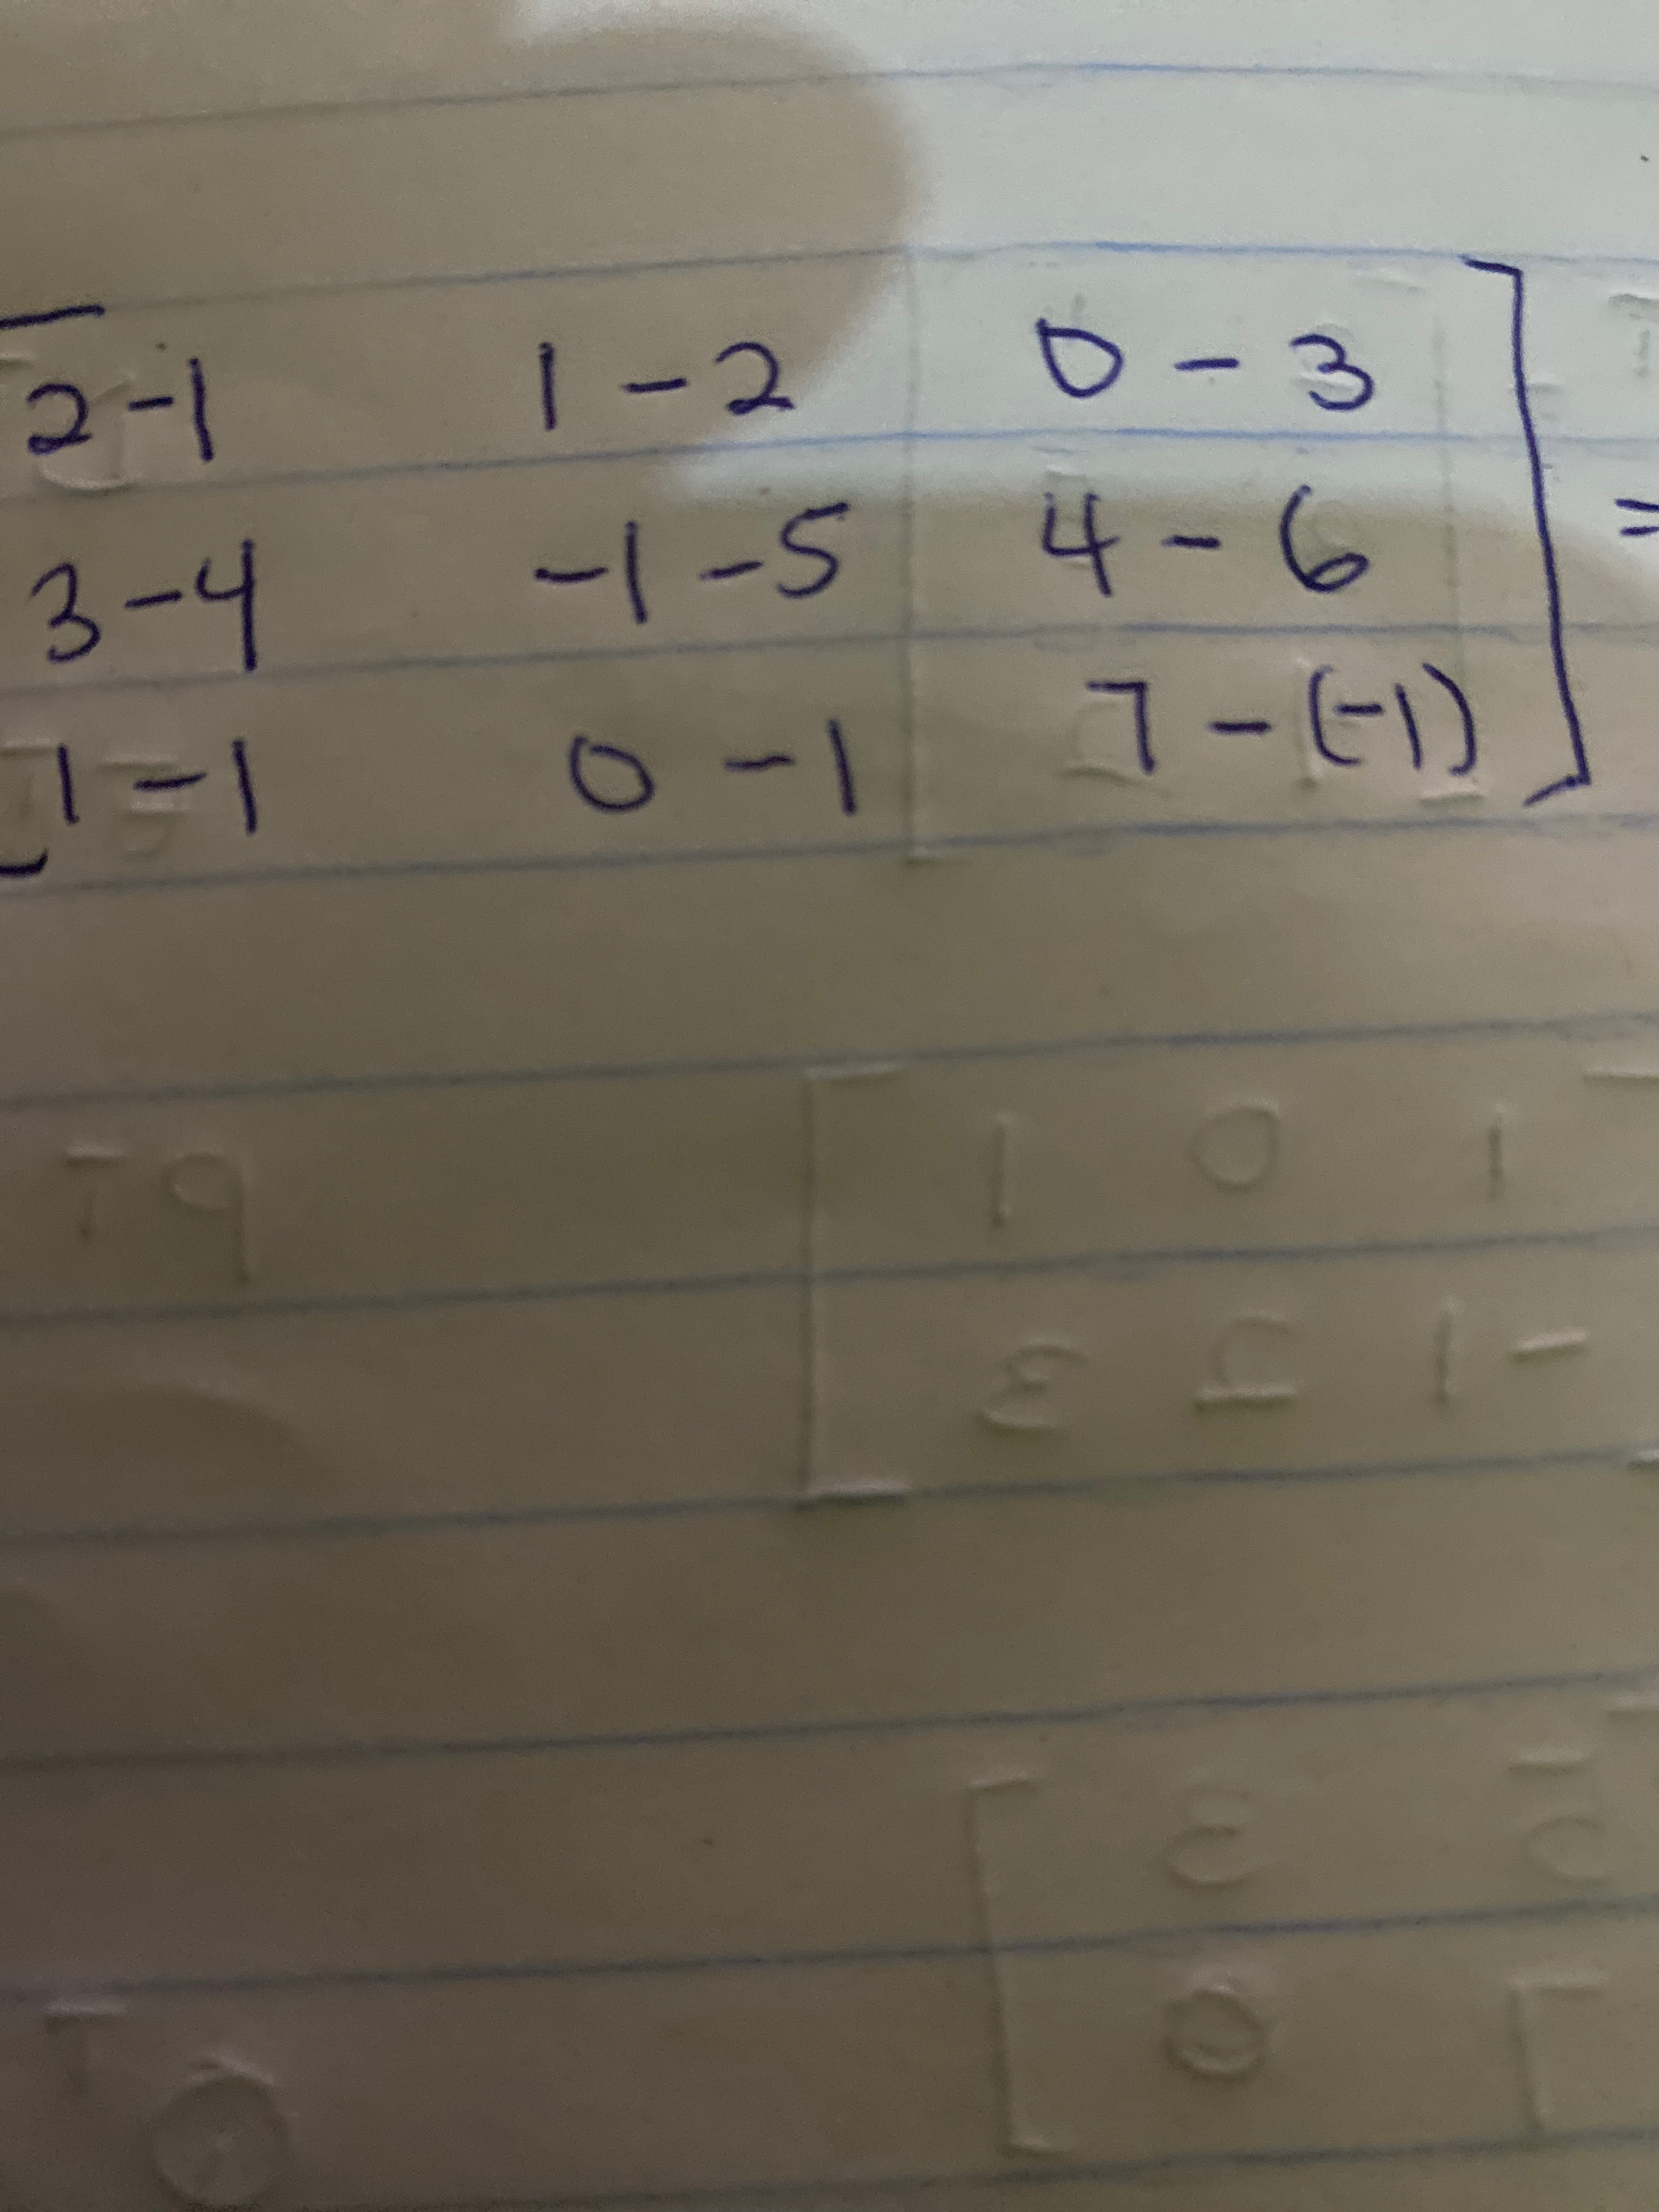 2-1 1-2 0-3
3-4 -1-5 4-6 =
1-1 0-1 7-(-1)